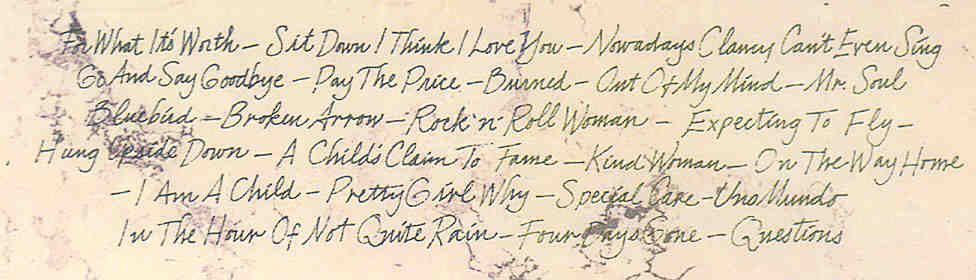 For What It's Worth – Sit Down I Think I Love You – Nowadays Clancy Can't Even Sing
Go And Say Goodbye – Pay The Price – Burned – Out Of My Mind – Mr. Soul
Bluebird – Broken Arrow – Rock 'n' Roll Woman – Expecting To Fly –
Hung Upside Down – A Child's Claim To Fame – Kind Woman – On The Way Home
– I Am A Child – Pretty Girl Why – Special Care – Uno Mundo
In The Hour Of Not Quite Rain – Four Days Gone – Questions